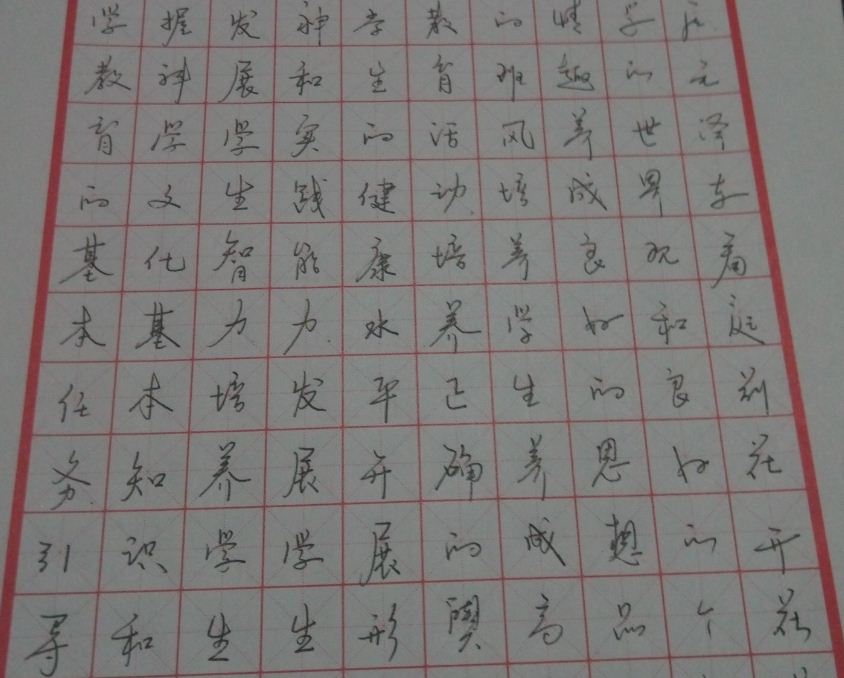 学教育的基本任务引导
握科学文化基本知识和
发展学生智力培养学生
神和实践能力发展学生
学生的健康水平开展形
教育活动培养正确的
的班风培养学生养成高
情趣养成良好的思想品
学的世界观和良好的个
泽东看庭前花开花